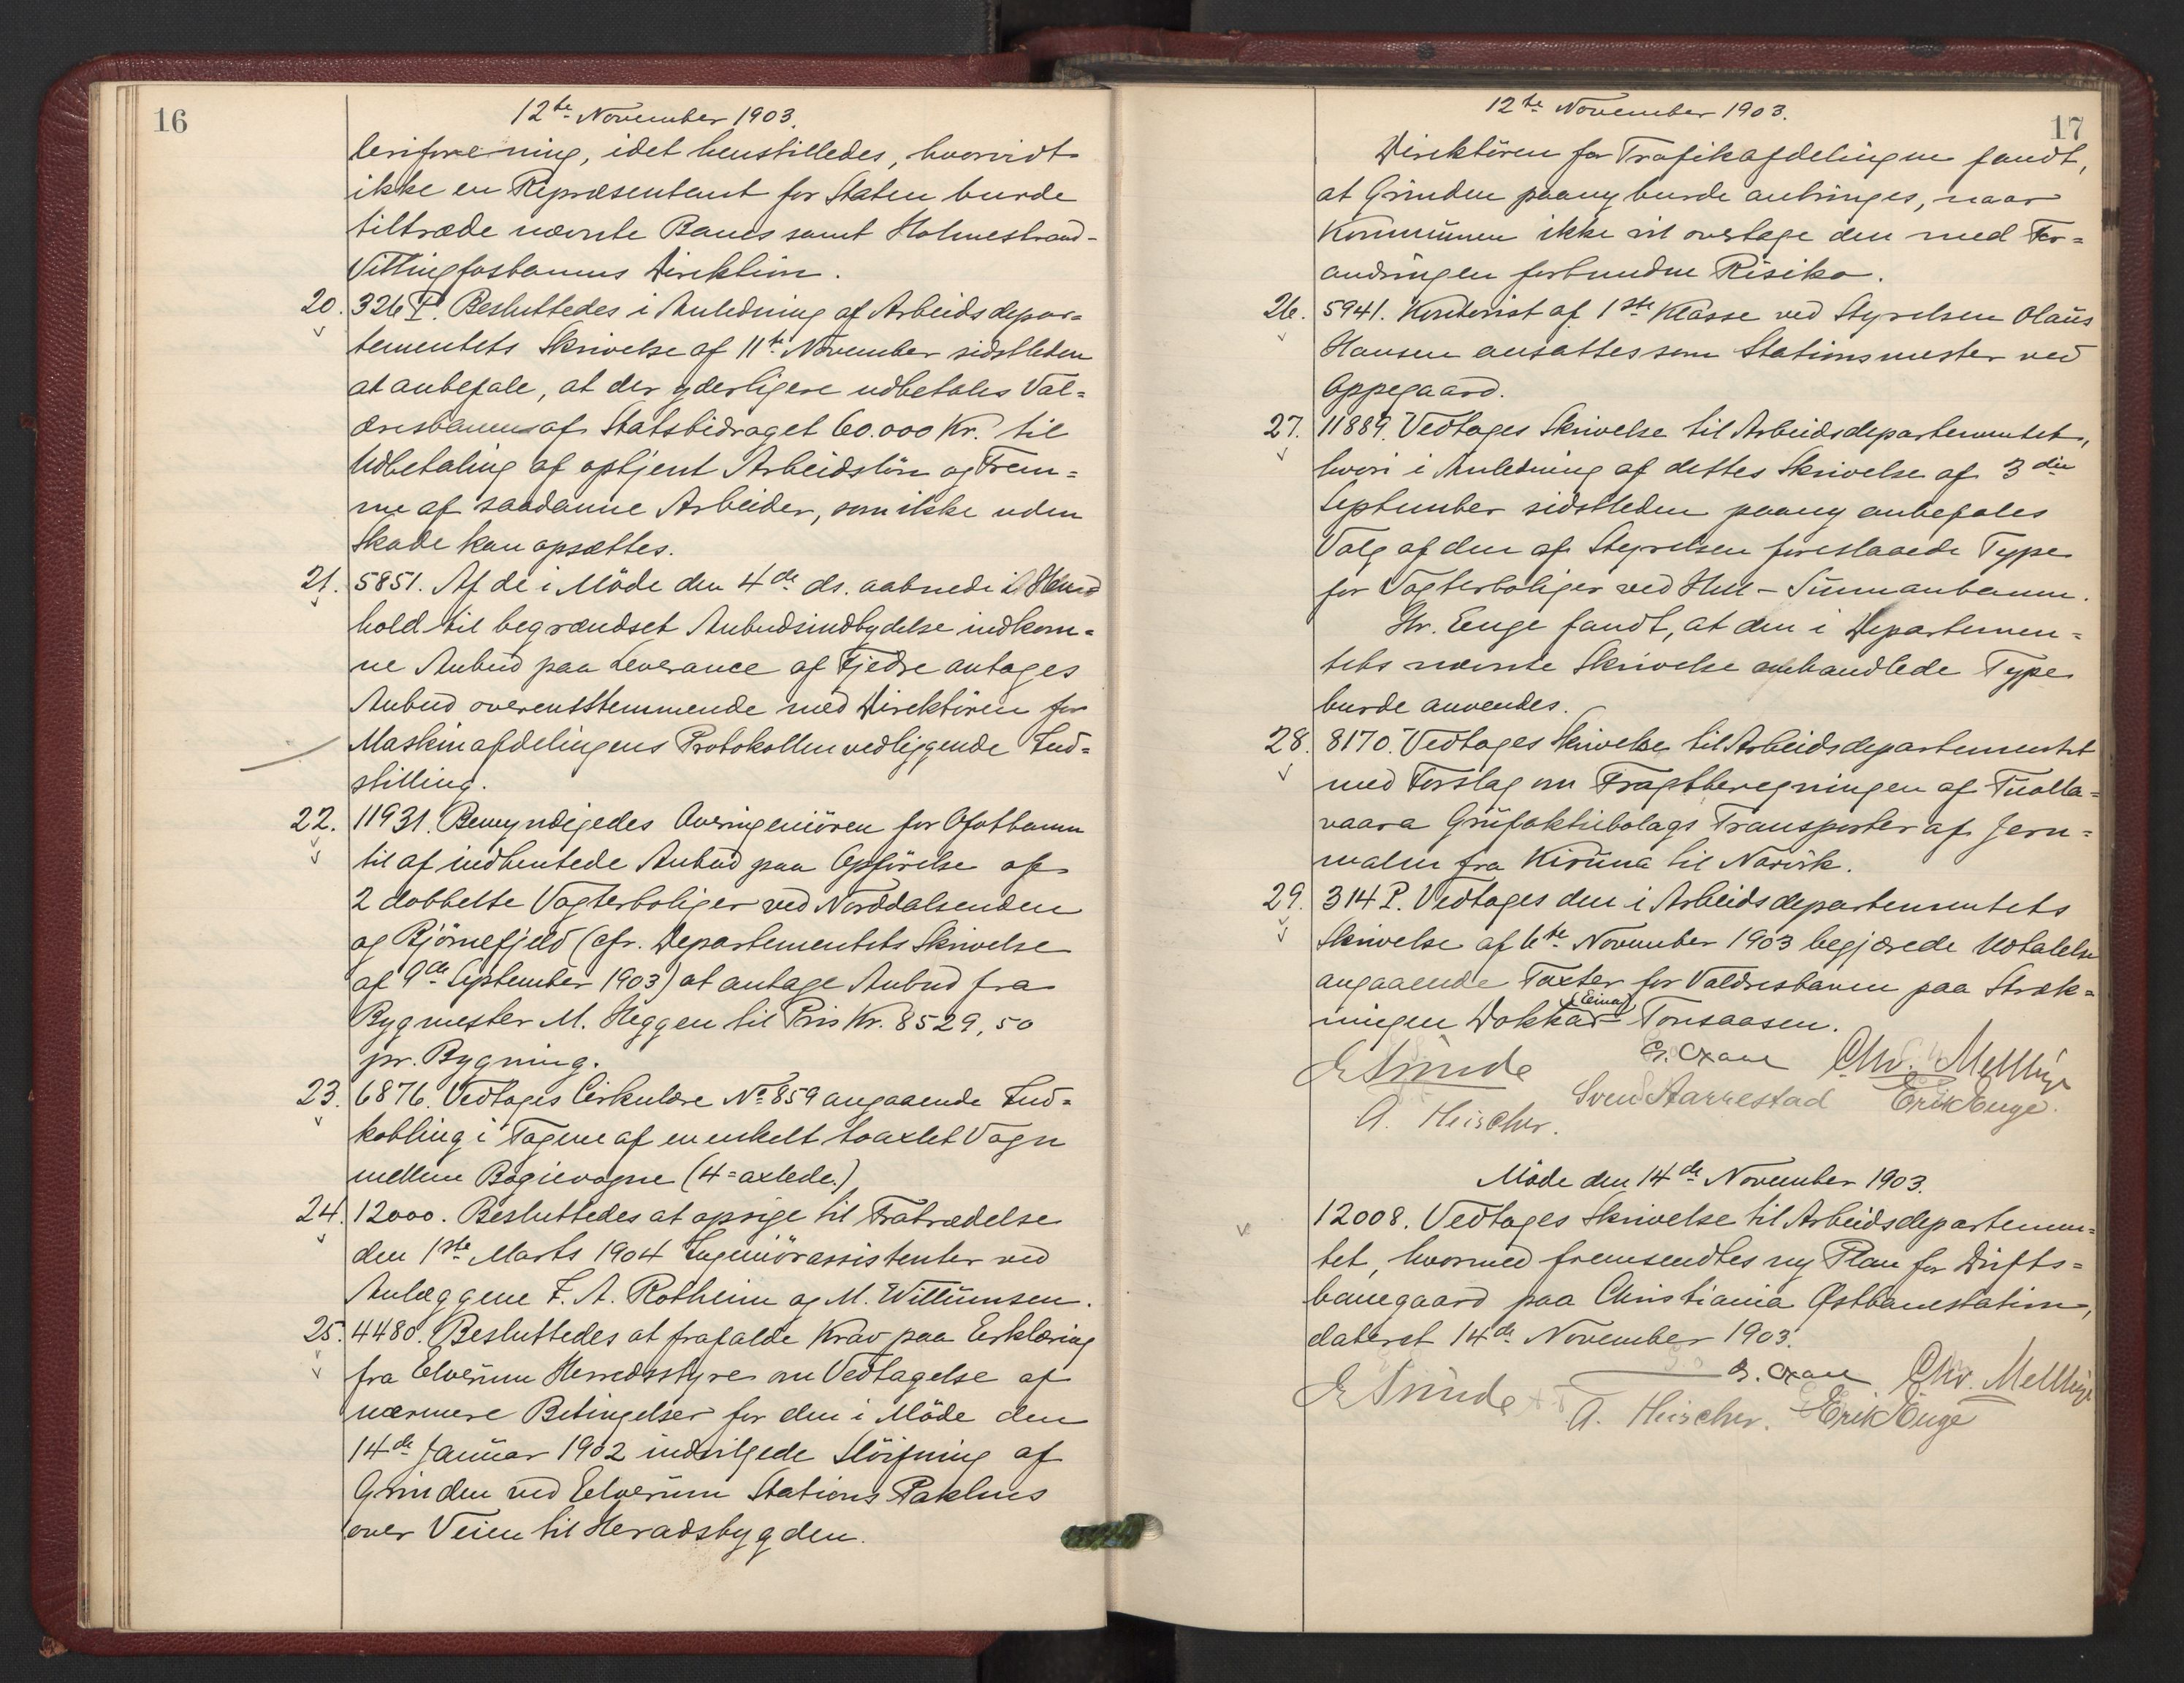 16
12te November 1903.
ikke en Repræsentant for Staten burde
tiltræde nævnte Banes samt Holmestrand-
Vittingfosbanens Direktion.
20. 326 P. Besluttedes i Anledning af Arbeidsdepar=
tementets Skrivelse af 11te November sidstleden
at anbefale, at der yderligere udbetales Val=
dresbanen af Statsbidraget 60.000 Kr. til
Udbetaling af optjent Arbeidsløn og Frem=
me af saadanne Arbeider, som ikke uden
Skade kan opsættes.
21. 5851. Af de i Møde den 4de ds. aabnede i Hen
hold til begrændset Anbudsindbydelse indkom=
ne Anbud paa Leverance af Fjedre antages
Anbud overensstemmende med Direktøren for
Maskinafdelingens Protokollen vedliggende Ind=
stilling.
22. 11931. Bemyndigedes Overingeniøren for Ofotbanen
til af indhentede Anbud paa Opførelse af
2 dobbelte Vogterboliger ved Norddalsenden
og Bjørnefjeld (cfr. Departementets Skrivelse
af 9de September 1903) at antage Anbud fra
Bygmester M. Heggen til Pris Kr. 8529,50
pr. Bygning.
23. 6876. Vedtoges Cirkulære No 859 angaaende Ind=
kobling i Togene af en enkelt toaxlet Vogn
mellem Bogievogne (4=axlede.)
24. 12000. Besluttedes at opsige til Fratrædelse
den 1ste Marts 1904 Ingeniørassistenter ved
Anlæggene F. A. Rotheim og M. Willumsen.
25. 4480. Besluttedes at frafalde Krav paa Erklæring
fra Elverum Herredsstyre om Vedtagelse af
nærmere Betingelser for den i Møde den
14de Januar 1902 indvilgede Sløifning af
Grinden ved Elverum Stations Pakhus
over Veien til Heradsbygden.
17
12te November 1903.
Direktøren for Trafikafdelingen fandt,
at Grinden paany burde anbringes, naar
Kommunen ikke vil overtage den med For=
andringen forbundne Risiko.
26. 5941. Kontorist af 1ste Klasse ved Styrelsen Olaus
Hansen ansattes som Stationsmester ved
Oppegaard.
27. 11889. Vedtoges Skrivelse til Arbeidsdepartementet,
hvori i Anledning af dettes Skrivelse af 3die
September sidstleden paany anbefales
Valg af den af Styrelsen foreslaaede Type
for Vogterboliger ved Hell-Sunnanbanen.
Hr. Enge fandt, at den i Departemen=
tets nævnte Skrivelse omhandlede Type
burde anvendes.
28. 8170. Vedtoges Skrivelse til Arbeidsdepartementet
med Forslag om Fragtberegningen af Tuolla=
vaara Grufaktiebolags Transporter af Jern=
malm fra Kiruna til Narvik.
29. 314 P. Vedtoges den i Arbeidsdepartementets
Skrivelse af 6te November 1903 begjærede Udtalelse
angaaende Taxter for Valdresbanen paa Stræk=
ningen Dokka (Eina) - Tonsaasen.
E Sunde G. Oxaal Chr. Mellbye
Sven Aarrestad Erik Enge.
A. Fleischer.
Møde den 14de November 1903.
12008. Vedtoges Skrivelse til Arbeidsdepartemen=
tet, hvormed fremsendtes ny Plan for Drifts=
banegaard paa Christiania Østbanestation,
dateret 14de November 1903.
E Sunde G. Oxaal Chr. Mellbye
A. Fleischer. Erik Enge